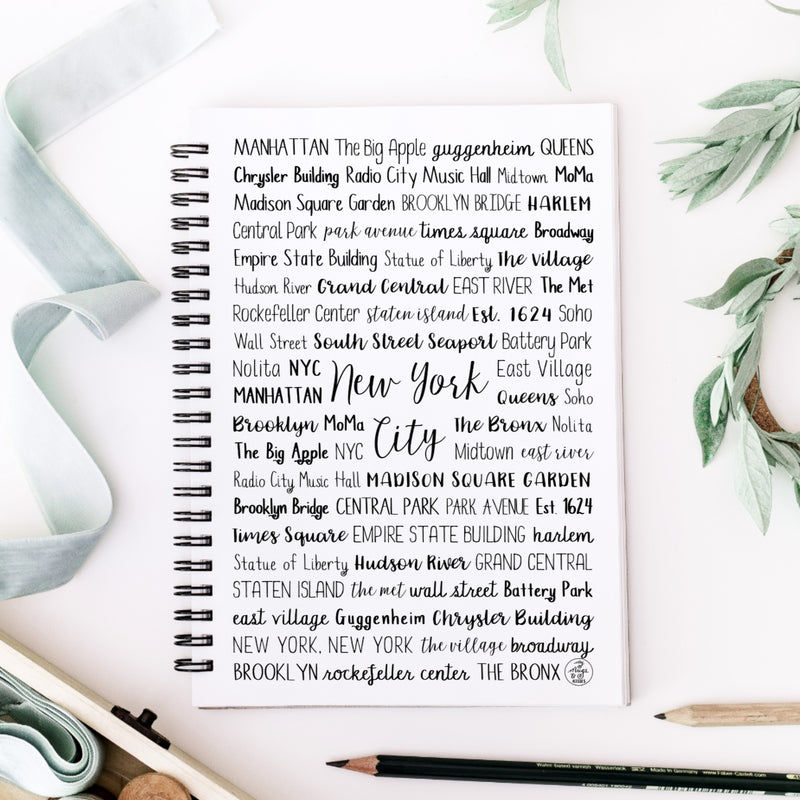 MANHATTAN The Big Apple guggenheim QUEENS
Chrysler Building Radio City Music Hall Midtown MoMa
Madison Square Garden BROOKLYN BRIDGE HARLEM
Central Park park avenue times square Broadway
Empire State Building Statue of Liberty The Village
Hudson River Grand Central EAST RIVER The Met
Rockefeller Center staten island Est. 1624 Soho
Wall Street South Street Seaport Battery Park
Nolita NYC New York East Village
MANHATTAN Queens Soho
Brooklyn MoMa City The Bronx Nolita
The Big Apple NYC Midtown east river
Radio City Music Hall MADISON SQUARE GARDEN
Brooklyn Bridge CENTRAL PARK PARK AVENUE Est. 1624
Times Square EMPIRE STATE BUILDING harlem
Statue of Liberty Hudson River GRAND CENTRAL
STATEN ISLAND the met wall street Battery Park
east village Guggenheim Chrysler Building
NEW YORK, NEW YORK the village broadway
BROOKLYN rockefeller center THE BRONX
Made in Germany www.Faber-Castell.com